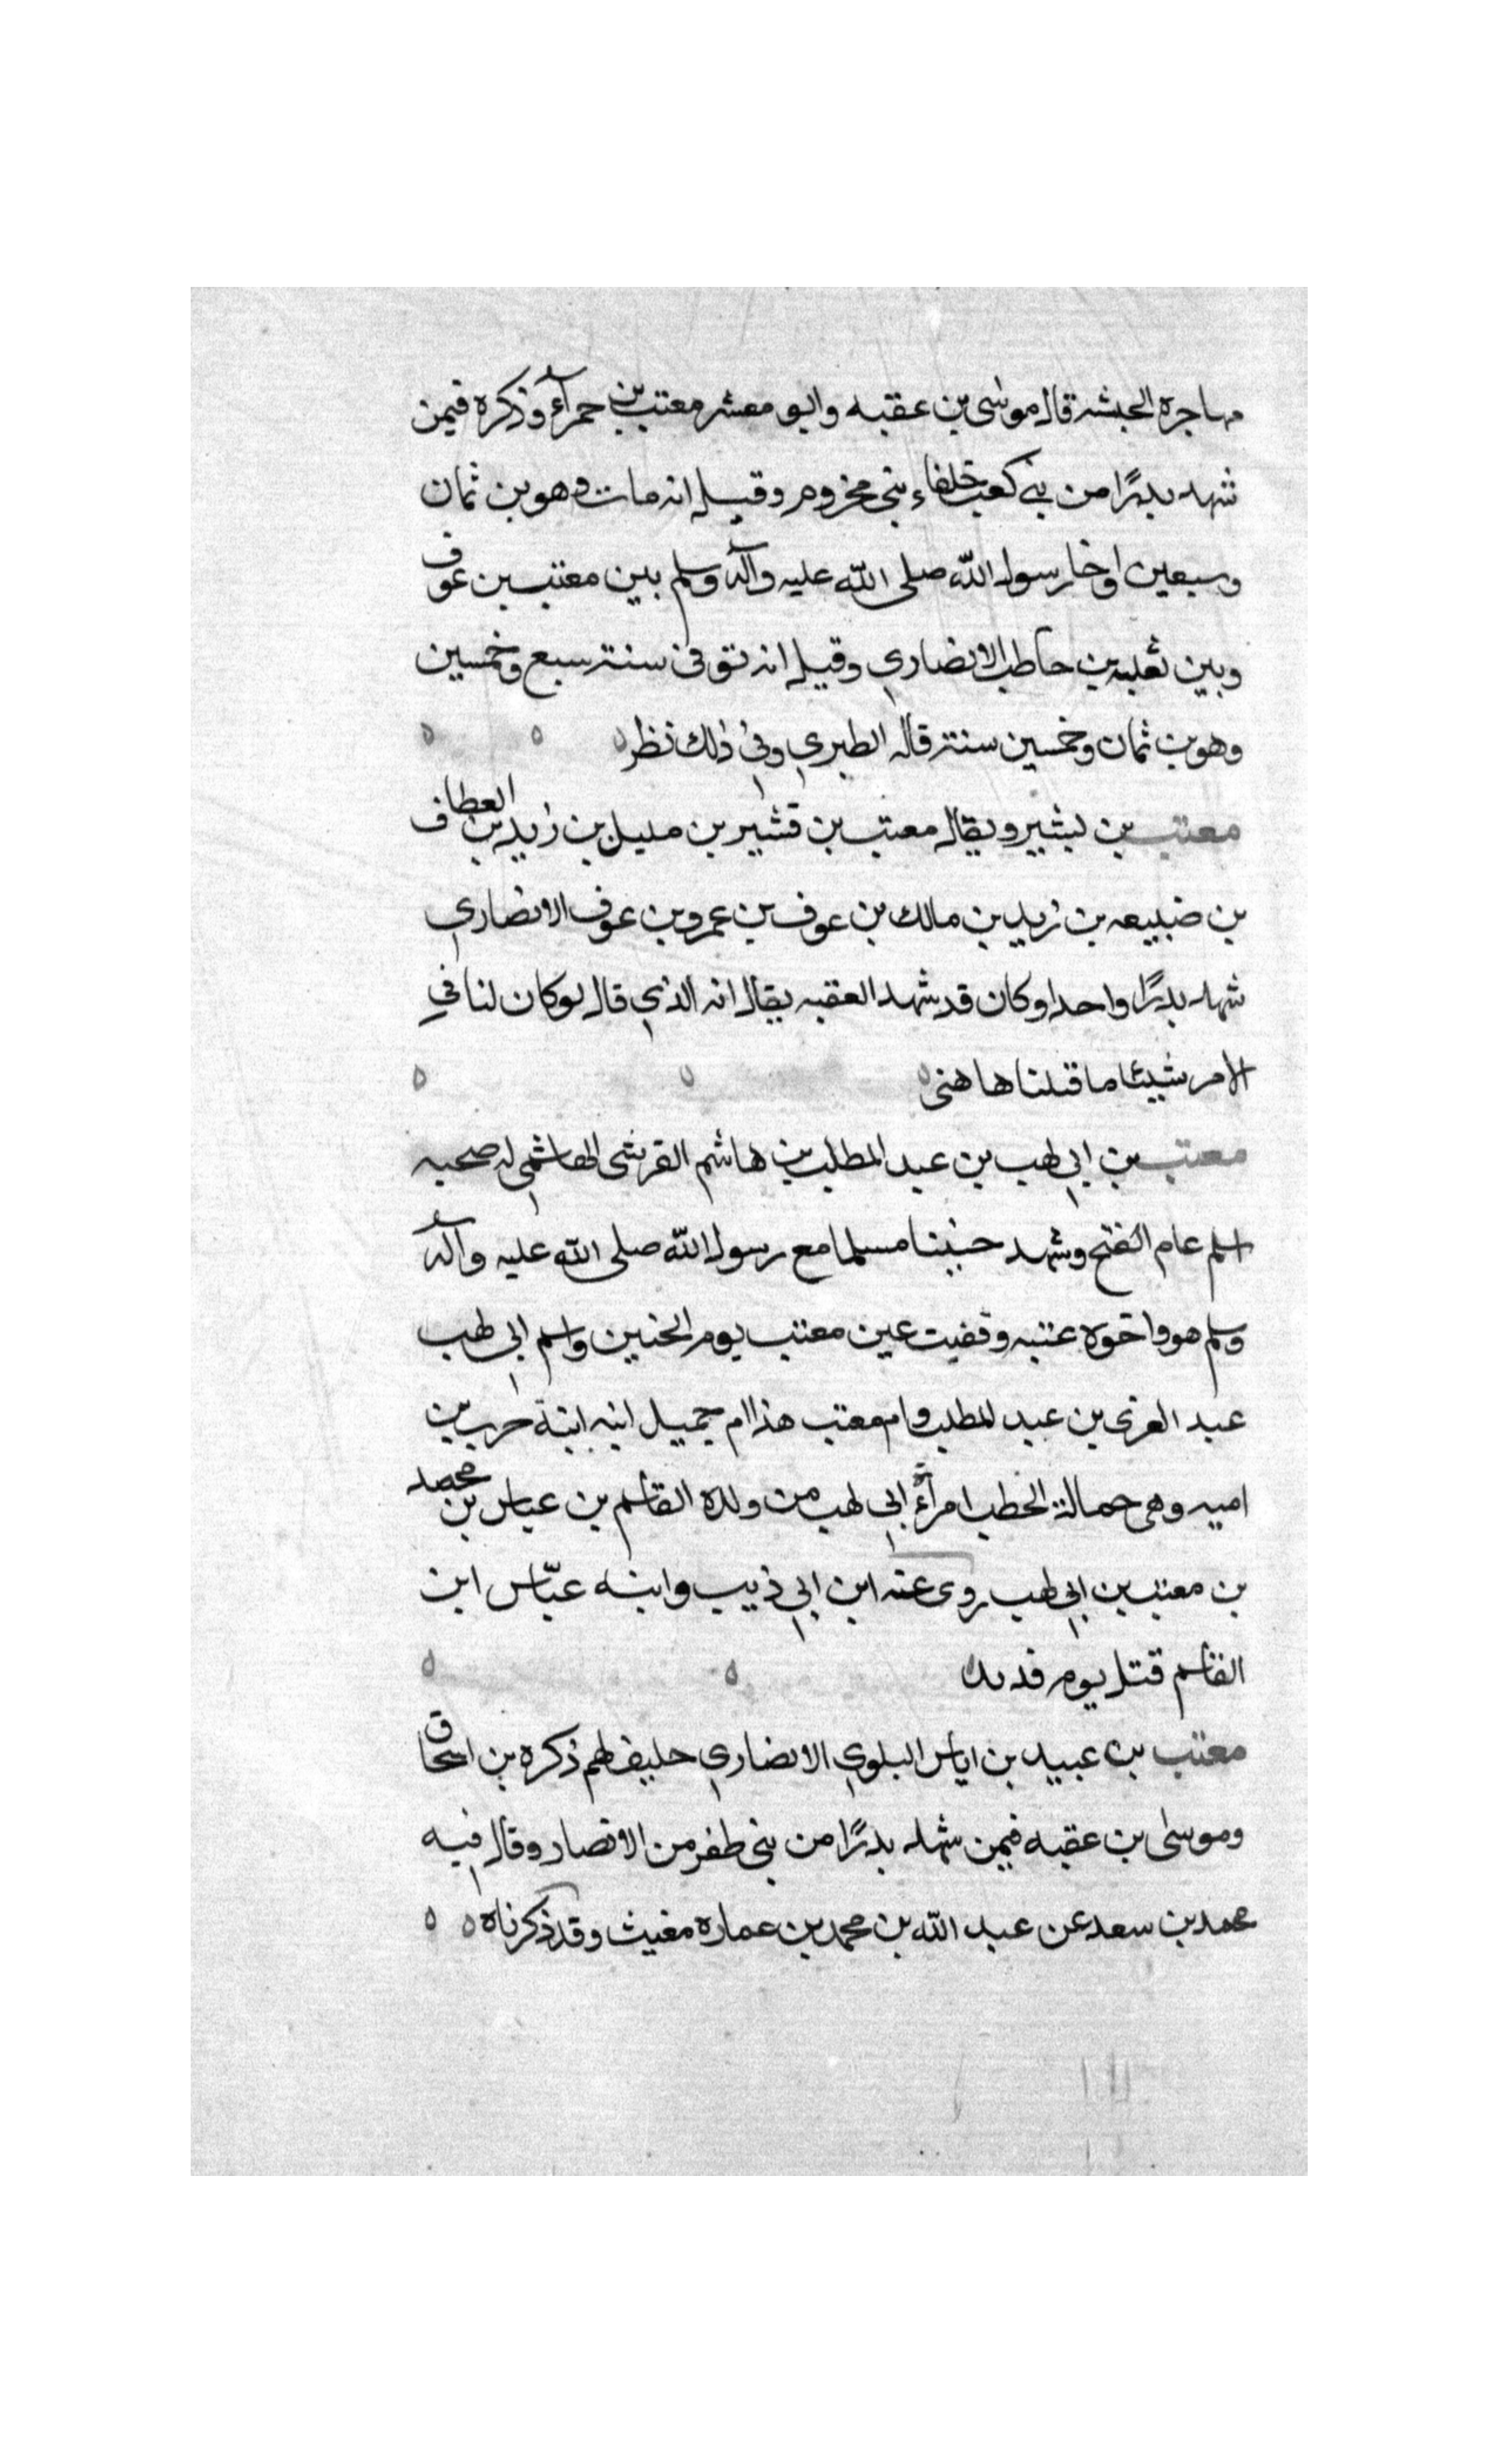 مهاجرة الحبشه قال موسى بن عقبه وابو معشر معتب بن حمرآء وذكره فيمن
شهد بدرًا من بني كعب خلفاء بني مخزوم وقيل انه مات وهو بن ثمان
وسبعين واخا رسول الله صلى الله عليه وآله وسلم بين معتب بن عوف
وبين ثعلبه بن حاطب الانصاري وقيل انه توفى سنة سبع وخمسين
وهو بن ثمان وخمسين سنة قاله الطبري وفي ذلك نظر
معتب بن بشير ويقال معتب بن قشير بن مليل بن زيد بن العطاف
بن ضبيعه بن زيد بن مالك بن عوف بن عمرو بن عوف الانصاري
شهد بدرًا واحدا وكان قد شهد العقبه يقال انه الذي قال لو كان لنا في
الامر شيئا ما قتلنا هاهنى
معتب بن ابي لهب بن عبد المطلب بن هاشم القرشى الهاشمي له صحبه
اسلم عام الفتح وشهد حنينا مسلما مع رسول الله صلى الله عليه وآله
وسلم هو واخوه عتبه وفقيت عين معتب يوم الحنين واسم ابي لهب
عبد العزى بن عبد المطلب وام معتب هذا ام جميل ابنه ابنة حرب بن
اميه وهى حمالة الحطب امرأة ابي لهب من ولده القاسم بن عباس بن محمد
بن معتب بن ابي لهب روى عنه ابن ابي ذيب وابنه عبّاس ابن
القاسم قتل يوم قديد
معتب بن عبيد بن اياس البلوي الانصاري حليف لهم ذكره بن اسحاق
وموسى بن عقبه فيمن شهد بدرًا من بني ظفر من الانصار وقال فيه
محمد بن سعد عن عبد الله بن محمد بن عماره مغيث وقد ذكرناه